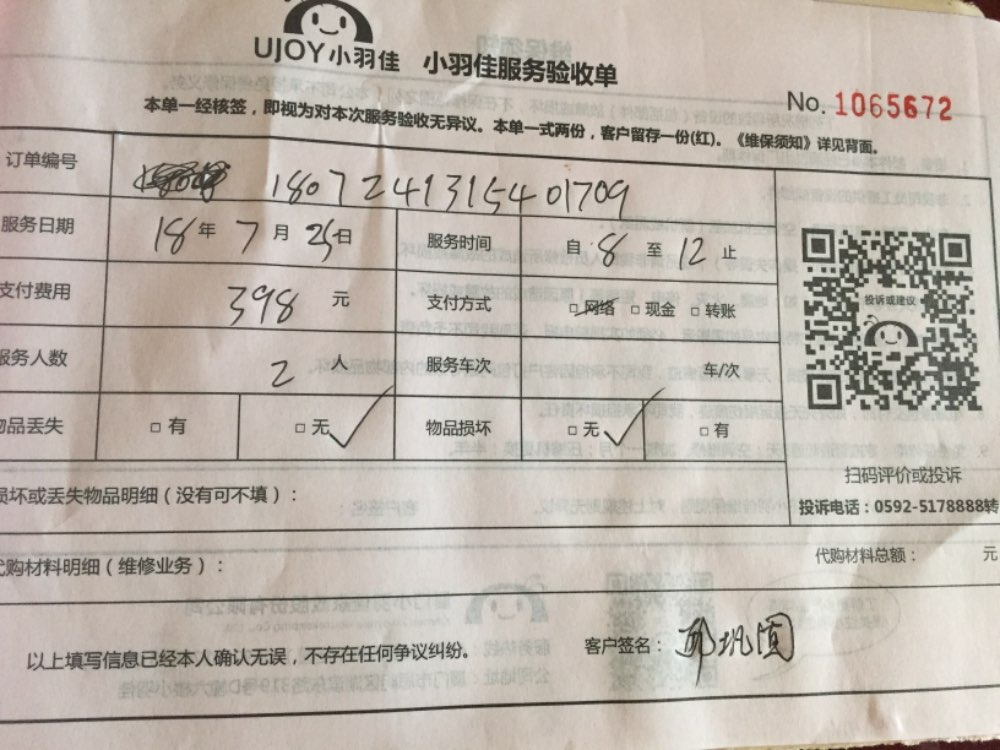 UJOY小羽佳 小羽佳服务验收单
No. 1065672
本单一经核签，即视为对本次服务验收无异议。本单一式两份，客户留存一份(红)。《维保须知》详见背面。
订单编号 1807241315401709
服务日期 18年7月25日 服务时间 自8至12止
支付费用 398元 支付方式 □网络 □现金 □转账
服务人数 2人 服务车次 车/次
物品丢失 □有 □无 ✓ 物品损坏 □无 ✓ □有
投诉或建议
扫码评价或投诉
投诉电话：0592-5178888转
损坏或丢失物品明细（没有可不填）：
代购材料明细（维修业务）： 代购材料总额： 元
以上填写信息已经本人确认无误，不存在任何争议纠纷。 客户签名：